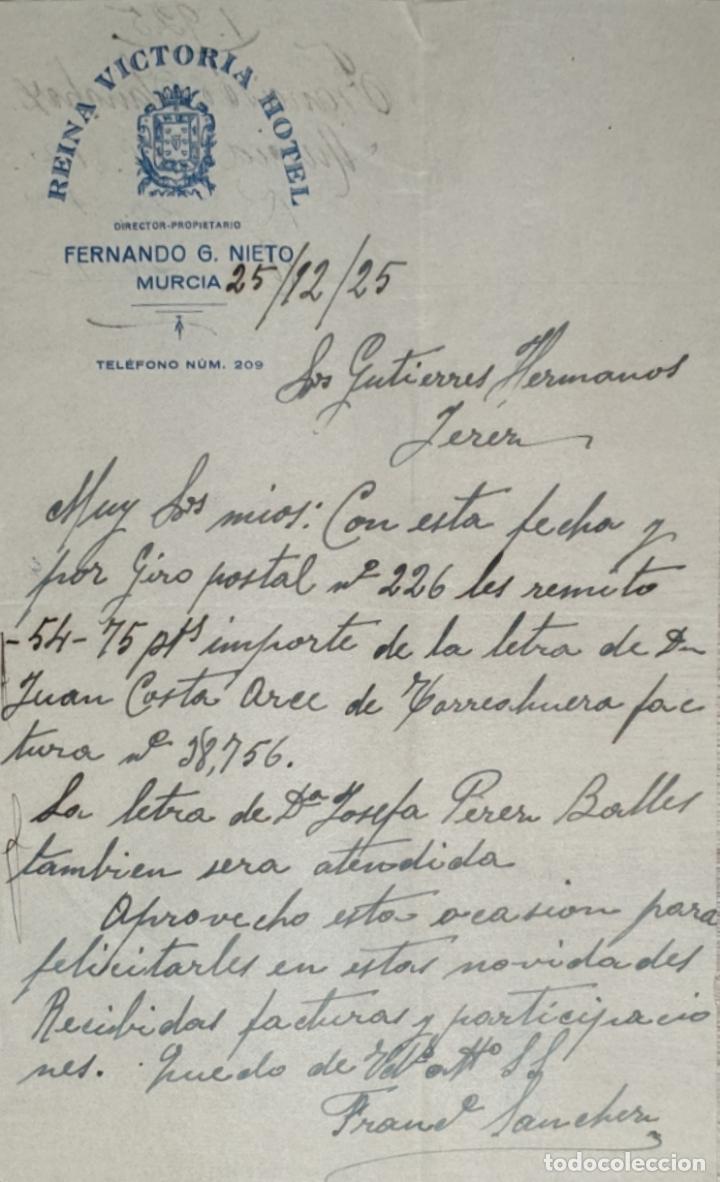 REINA VICTORIA HOTEL
DIRECTOR-PROPIETARIO
FERNANDO G. NIETO
MURCIA 25/12/25
TELÉFONO NÚM. 209
Srs Gutierres Hermanos
Jerez
Muy Srs mios: Con esta fecha y
por Giro postal nº 226 les remito
-54-75 pts importe de la letra de Dn
Juan Costa Arce de Torreahuera fac
tura nº 38,756.
La letra de Dª Josefa Perez Balles
tambien sera atendida
Aprovecho esta ocasion para
felicitarles en estas novidades
Recibidas facturas y participacio
nes. Quedo de Vds atto SS
Francº Sanchez
todocoleccion